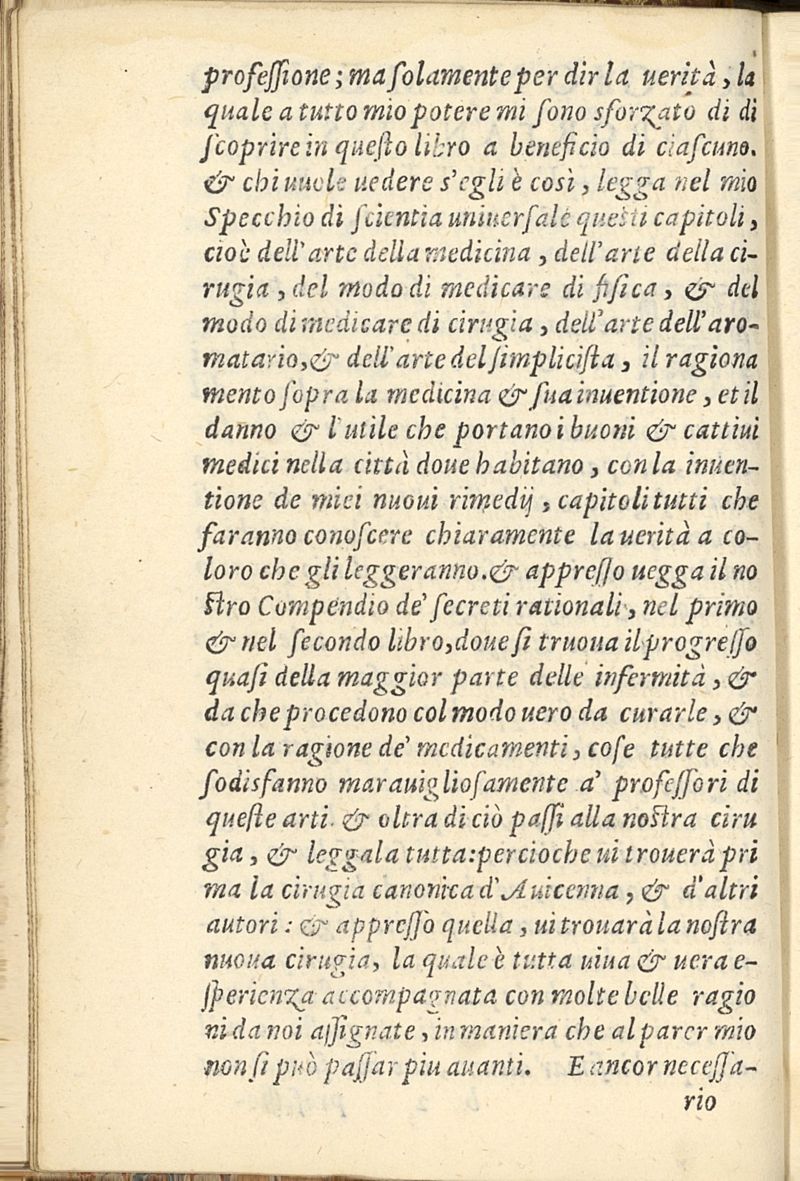 profeſſione; ma ſolamente per dir la uerità, la
quale a tutto mio potere mi ſono sforzato di di
ſcoprire in queſto libro a beneficio di ciaſcuno.
& chi uuole uedere s'egli è così, legga nel mio
Specchio di ſcientia uniuerſale queſti capitoli,
cioè dell'arte della medicina, dell'arte della ci-
rugia, del modo di medicare di fiſica, & del
modo di medicare di cirugia, dell'arte dell'aro-
matario, & dell'arte del ſimpliciſta, il ragiona
mento ſopra la medicina & ſua inuentione, et il
danno & l'utile che portano i buoni & cattiui
medici nella città doue habitano, con la inuen-
tione de miei nuoui rimedij, capitoli tutti che
faranno conoſcere chiaramente la uerità a co-
loro che gli leggeranno. & appreſſo uegga il no
ſtro Compendio de' ſecreti rationali, nel primo
& nel ſecondo libro, doue ſi truoua il progreſſo
quaſi della maggior parte delle infermità, &
da che procedono col modo uero da curarle, &
con la ragione de' medicamenti, coſe tutte che
ſodisfanno marauiglioſamente a' profeſſori di
queſte arti. & oltra di ciò paſſi alla noſtra ciru
gia, & leggala tutta: percioche ui trouerà pri
ma la cirugia canonica d'Auicenna, & d'altri
autori: & appreſſo quella, ui trouarà la noſtra
nuoua cirugia, la quale è tutta uiua & uera e-
ſperienza accompagnata con molte belle ragio
ni da noi aſſignate, in maniera che al parer mio
non ſi può paſſar piu auanti. E ancor neceſſa-
rio